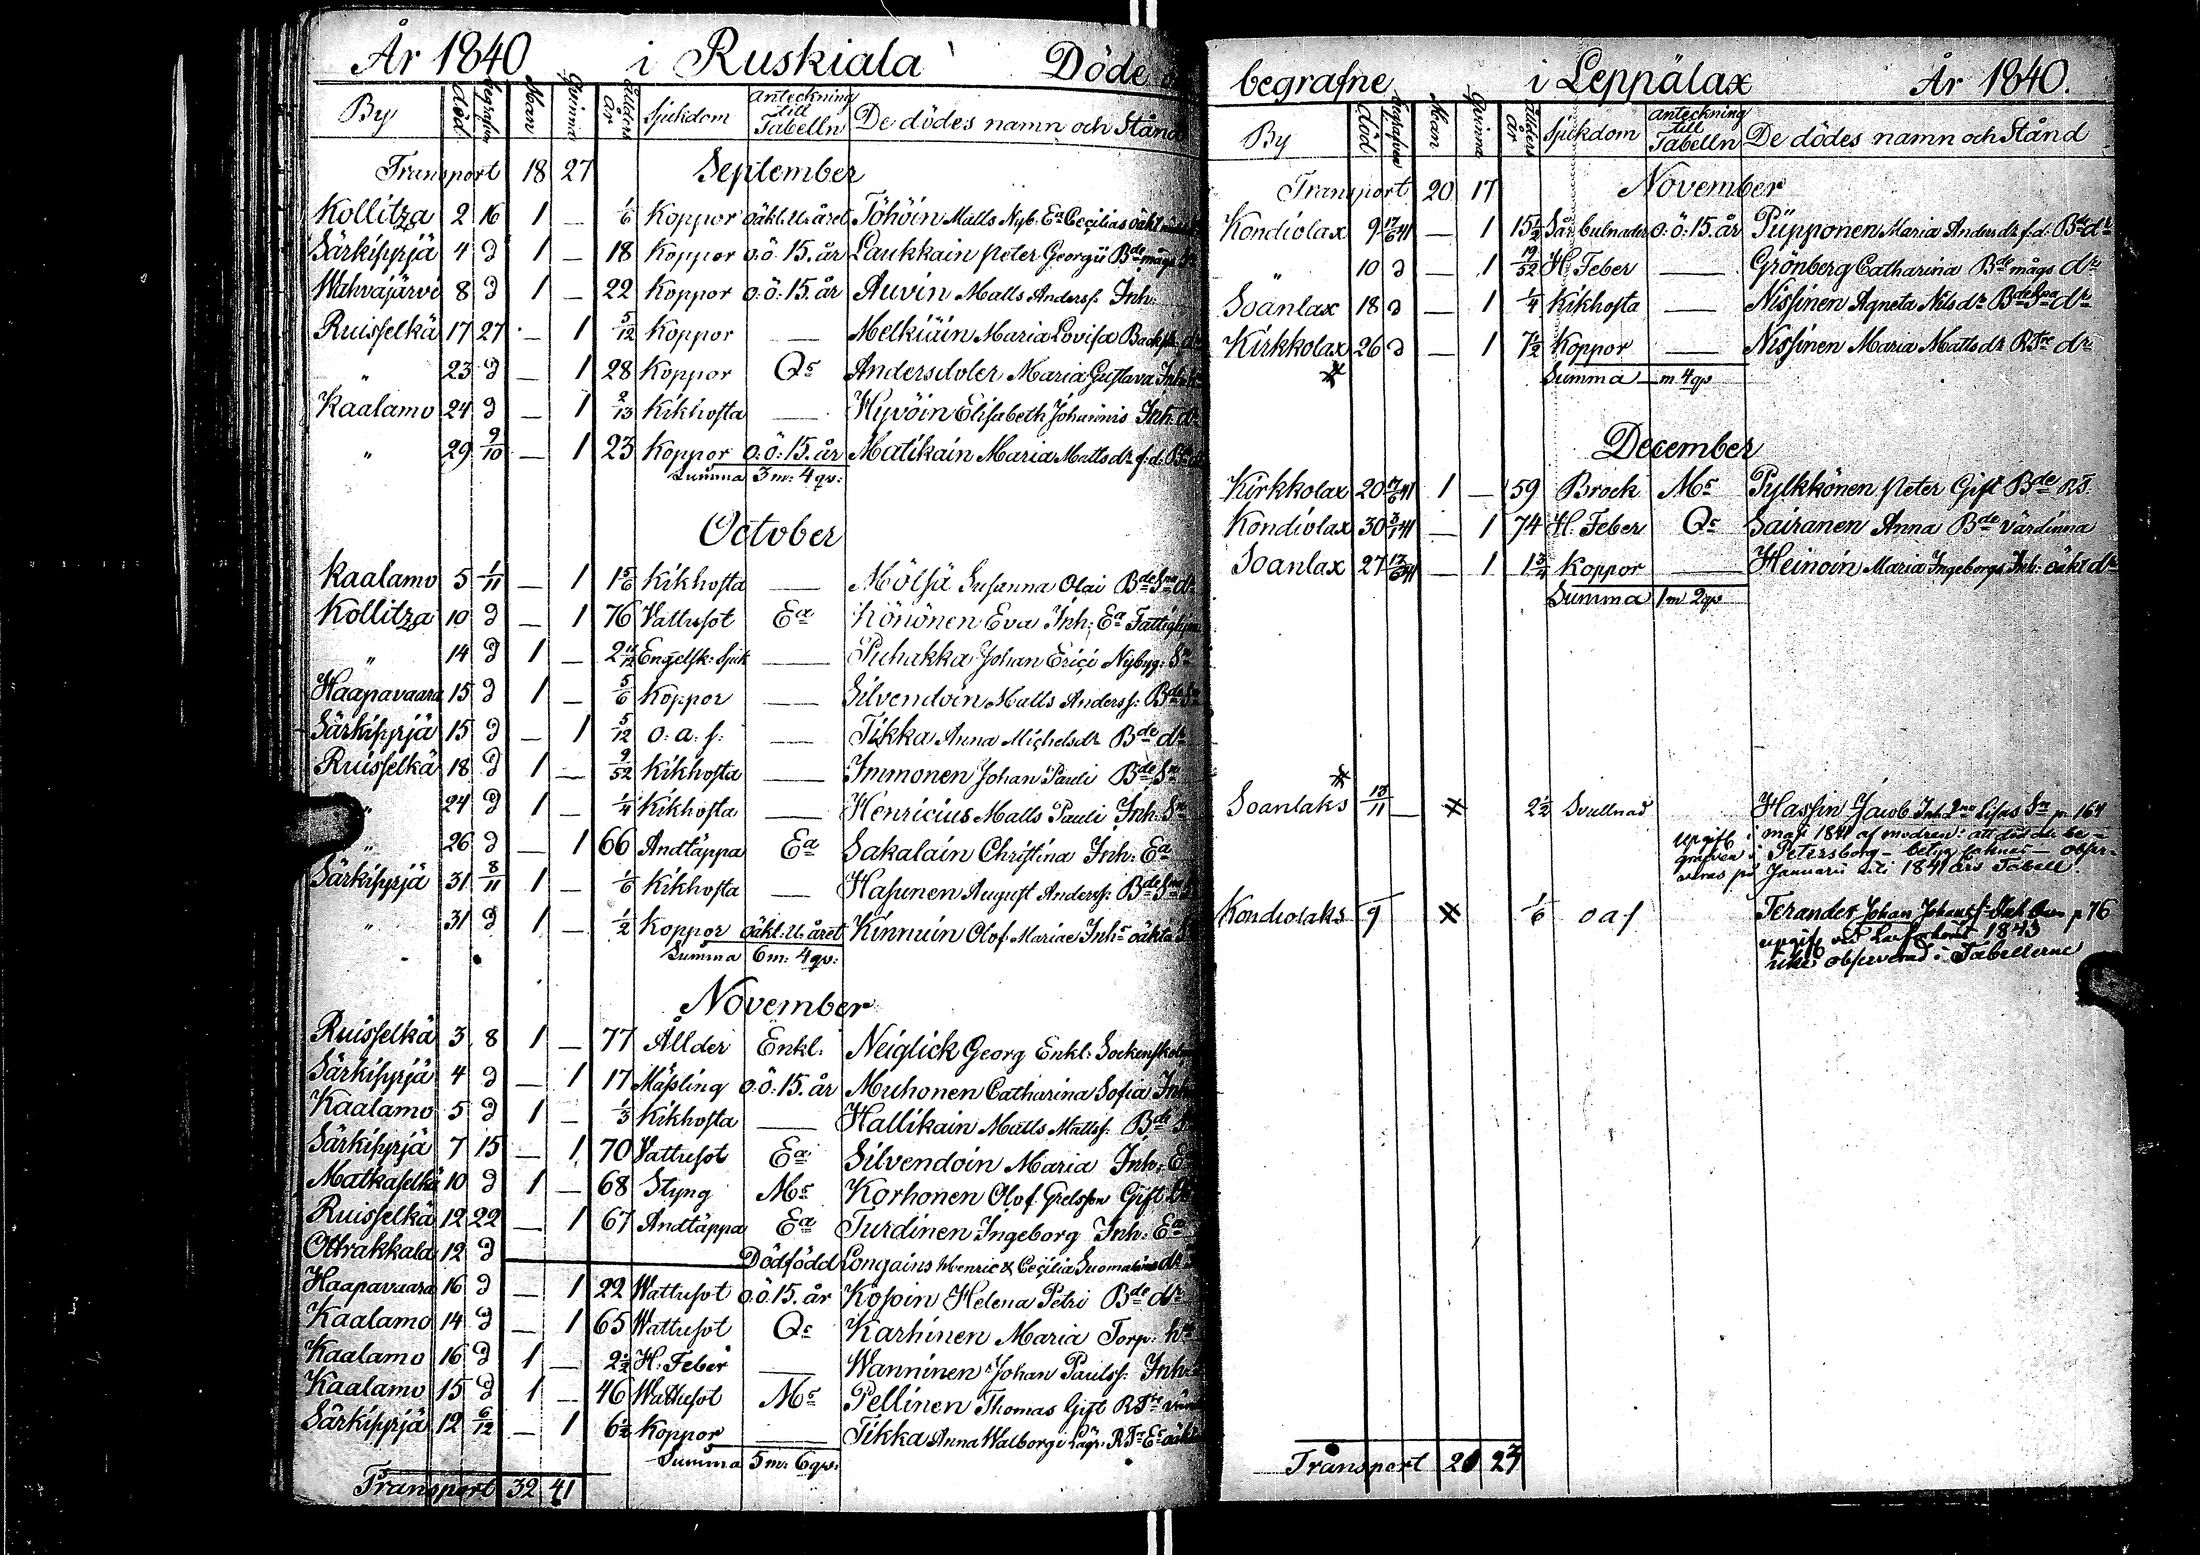 År 1840 i Ruskiala Döde
By död begrafven Man Qvinna Ålders år Sjukdom Anteckning till Tabelln De dödes namn och Stånd
Transport 18 27 September
Kollitza 2 16 1 — 1/6 Koppor oäkt. U. året Töhöin Matts Nyb. Ea Cecilias oäkt
Särkisyrjä 4 d 1 — 18 Koppor o.ö. 15. år Laukkain Peter Georgii Bde mågs
Wahvajärvi 8 d 1 — 22 Koppor o.ö. 15. år Auvin Matts Anderss: Inh:
Ruisselkä 17 27 — 1 5/12 Koppor — Melkiäin Maria Lovisa
" 23 d — 1 28 Koppor Qr Andersdoter Maria Gustava Inh:
Kaalamo 24 d — 1 2/13 Kikhosta — Hyvöin Elisabeth Johannis Inh: dr
" 29 9/10 — 1 23 Koppor o.ö. 15. år Matikain Maria Matts dr f.d.
Summa 3 m: 4 qv:
October
Kaalamo 5 1/11 — 1 1 5/6 Kikhosta — Mölsä Susanna Olai Bde Sns dr
Kollitza 10 d — 1 76 Vattusot Ea Könönen Eva Inh: Ea
" 14 d 1 — 2 11/12 Engelsk: Sjuk — Puhakka Johan Erici Nybyg: Sn
Haapavaara 15 d 1 — 5/6 Koppor — Silvendoin Matts Anderss: Bde Sn
Särkisyrjä 15 d — 1 5/12 o. a. s: — Tikka Anna Michelsdr Bde dr
Ruisselkä 18 d 1 — 9/52 Kikhosta — Immonen Johan Pauli Bde Sn
" 24 d 1 — 1/4 Kikhosta — Henricius Matts Pauli Inh: Sn
" 26 d — 1 66 Andtäppa Ea Sakalain Christina Inh: Ea
Särkisyrjä 31 8/11 1 — 1/6 Kikhosta — Hasunen August Anderss: Bde Sns
" 31 d 1 — 1/2 Koppor oäkt. U. året Kinnuin Olof Mariae Inhs oäkta
Summa 6 m: 4 qv:
November
Ruisselkä 3 8 1 — 77 Ållder Enkl. Neiglick Georg Enkl:
Särkisyrjä 4 d — 1 17 Mässling o.ö. 15. år Muhonen Catharina Sofia Inh
Kaalamo 5 d 1 — 1/3 Kikhosta — Hallikain Matts Mattss. Bde
Särkisyrjä 7 15 — 1 70 Vattusot Ea Silvendoin Maria Inh: E
Matkaselkä 10 d 1 — 68 Styng Mr Korhonen Olof Grelsson Gift
Ruisselkä 12 22 — 1 67 Andtäppa Ea Turdinen Ingeborg Inh: Ea
Ottrakkala 12 d — Dödfödd Longains Henric & Cecilia Suomalains dr
Haapavaara 16 d — 1 22 Wattusot o.ö. 15. år Kosoin Helena Petri Bde dr
Kaalamo 14 d — 1 65 Wattusot Qr Karhinen Maria Torp:
Kaalamo 16 d 1 — 2 1/2 H: Feber — Wanninen Johan Paulss. Inh:
Kaalamo 15 d 1 — 46 Wattusot Mr Pellinen Thomas Gift RTre
Särkisyrjä 12 6/12 — 1 6 1/2 Koppor — Tikka Anna Walborg
Summa 5 m: 6 qv:
Transport 32 41
begrafne i Leppälax År 1840.
By död begrafven Man Qvinna Ålders år Sjukdom Anteckning till Tabelln De dödes namn och Stånd
Transport 20 17 November
Kondiolax 9 17/6 41 — 1 15 1/2 Sår bulnader o.ö. 15. år Püpponen Maria Anders dr f.d. Bde dr
" 10 d — 1 19/52 H. Feber — Grönberg Catharina Bde mågs dr
Soanlax 18 d — 1 1/4 Kikhosta — Nissinen Agneta Nils dr Bde Sns dr
Kirkkolax 26 d — 1 7 1/2 Koppor — Nissinen Maria Matts dr RTre dr
Summa — m 4 qv
December
Kirkkolax 20 17/6 41 1 — 59 Brock Mr Pylkkönen Peter Gift Bde RT.
Kondiolax 30 3/1 41 — 1 74 H. Feber Qr Sairanen Anna Bde värdinna
Soanlax 27 17/6 41 — 1 1 3/4 Koppor — Heinoin Maria Ingeborgs Inh: oäkt dr
Summa 1 m 2 qv
Soanlaks 13/11 — 2 1/2 Svullnad Hassin Jacob Inh Lisas Sn p. 164
upgift i maji 1841 af modren: att död o be-
graven i Petersborg — betyg saknas — obser-
veras på Januarii uti 1841 års Tabell.
Kondiolaks 9 1/6 o a s Terander Johan Johanss p 76
upgift vid 1843
icke observerad i Tabellerne
Transport 21 23